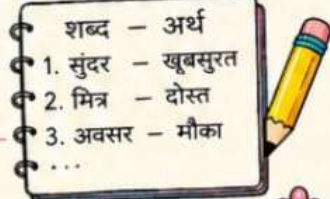 शब्द – अर्थ
1. सुंदर – खूबसुरत
2. मित्र – दोस्त
3. अवसर – मौका
...